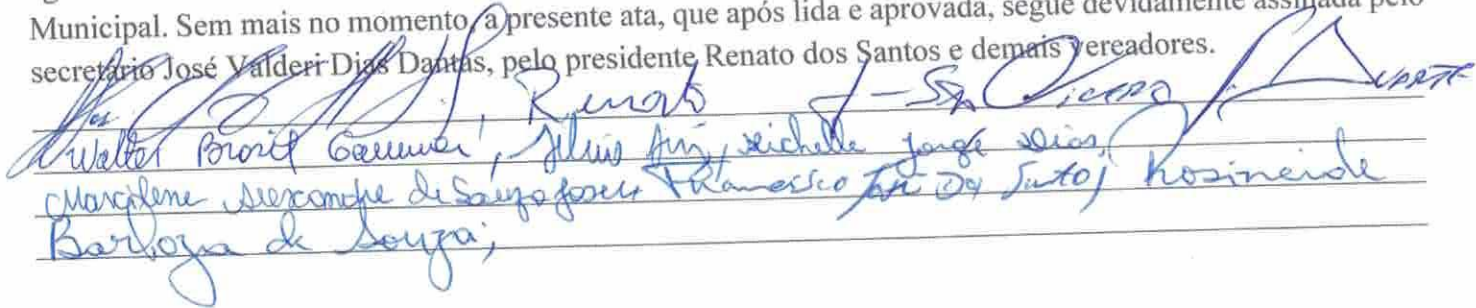 Municipal. Sem mais no momento, a presente ata, que após lida e aprovada, segue devidamente assinada pelo
secretário José Valderi Dias Dantas, pelo presidente Renato dos Santos e demais vereadores.
Renato
Walter Brasil, Michelle Jorge Dias,
Marcilene Alexandre de Souza Francisco Dos Santos, Rosineide
Barboza de Souza;